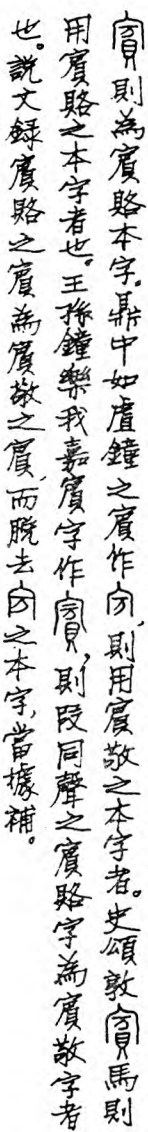 賓則為賓賂本字。鼎中如虘鐘之賓作𡧍,則用賓敬之本字者。史頌敦賓馬則
用賓賂之本字者也。王孫鐘樂我嘉賓字作賓,則段同聲之賓賂字為賓敬字者
也。說文錄賓賂之賓為賓敬之賓,而脫去𡧍之本字,當據補。